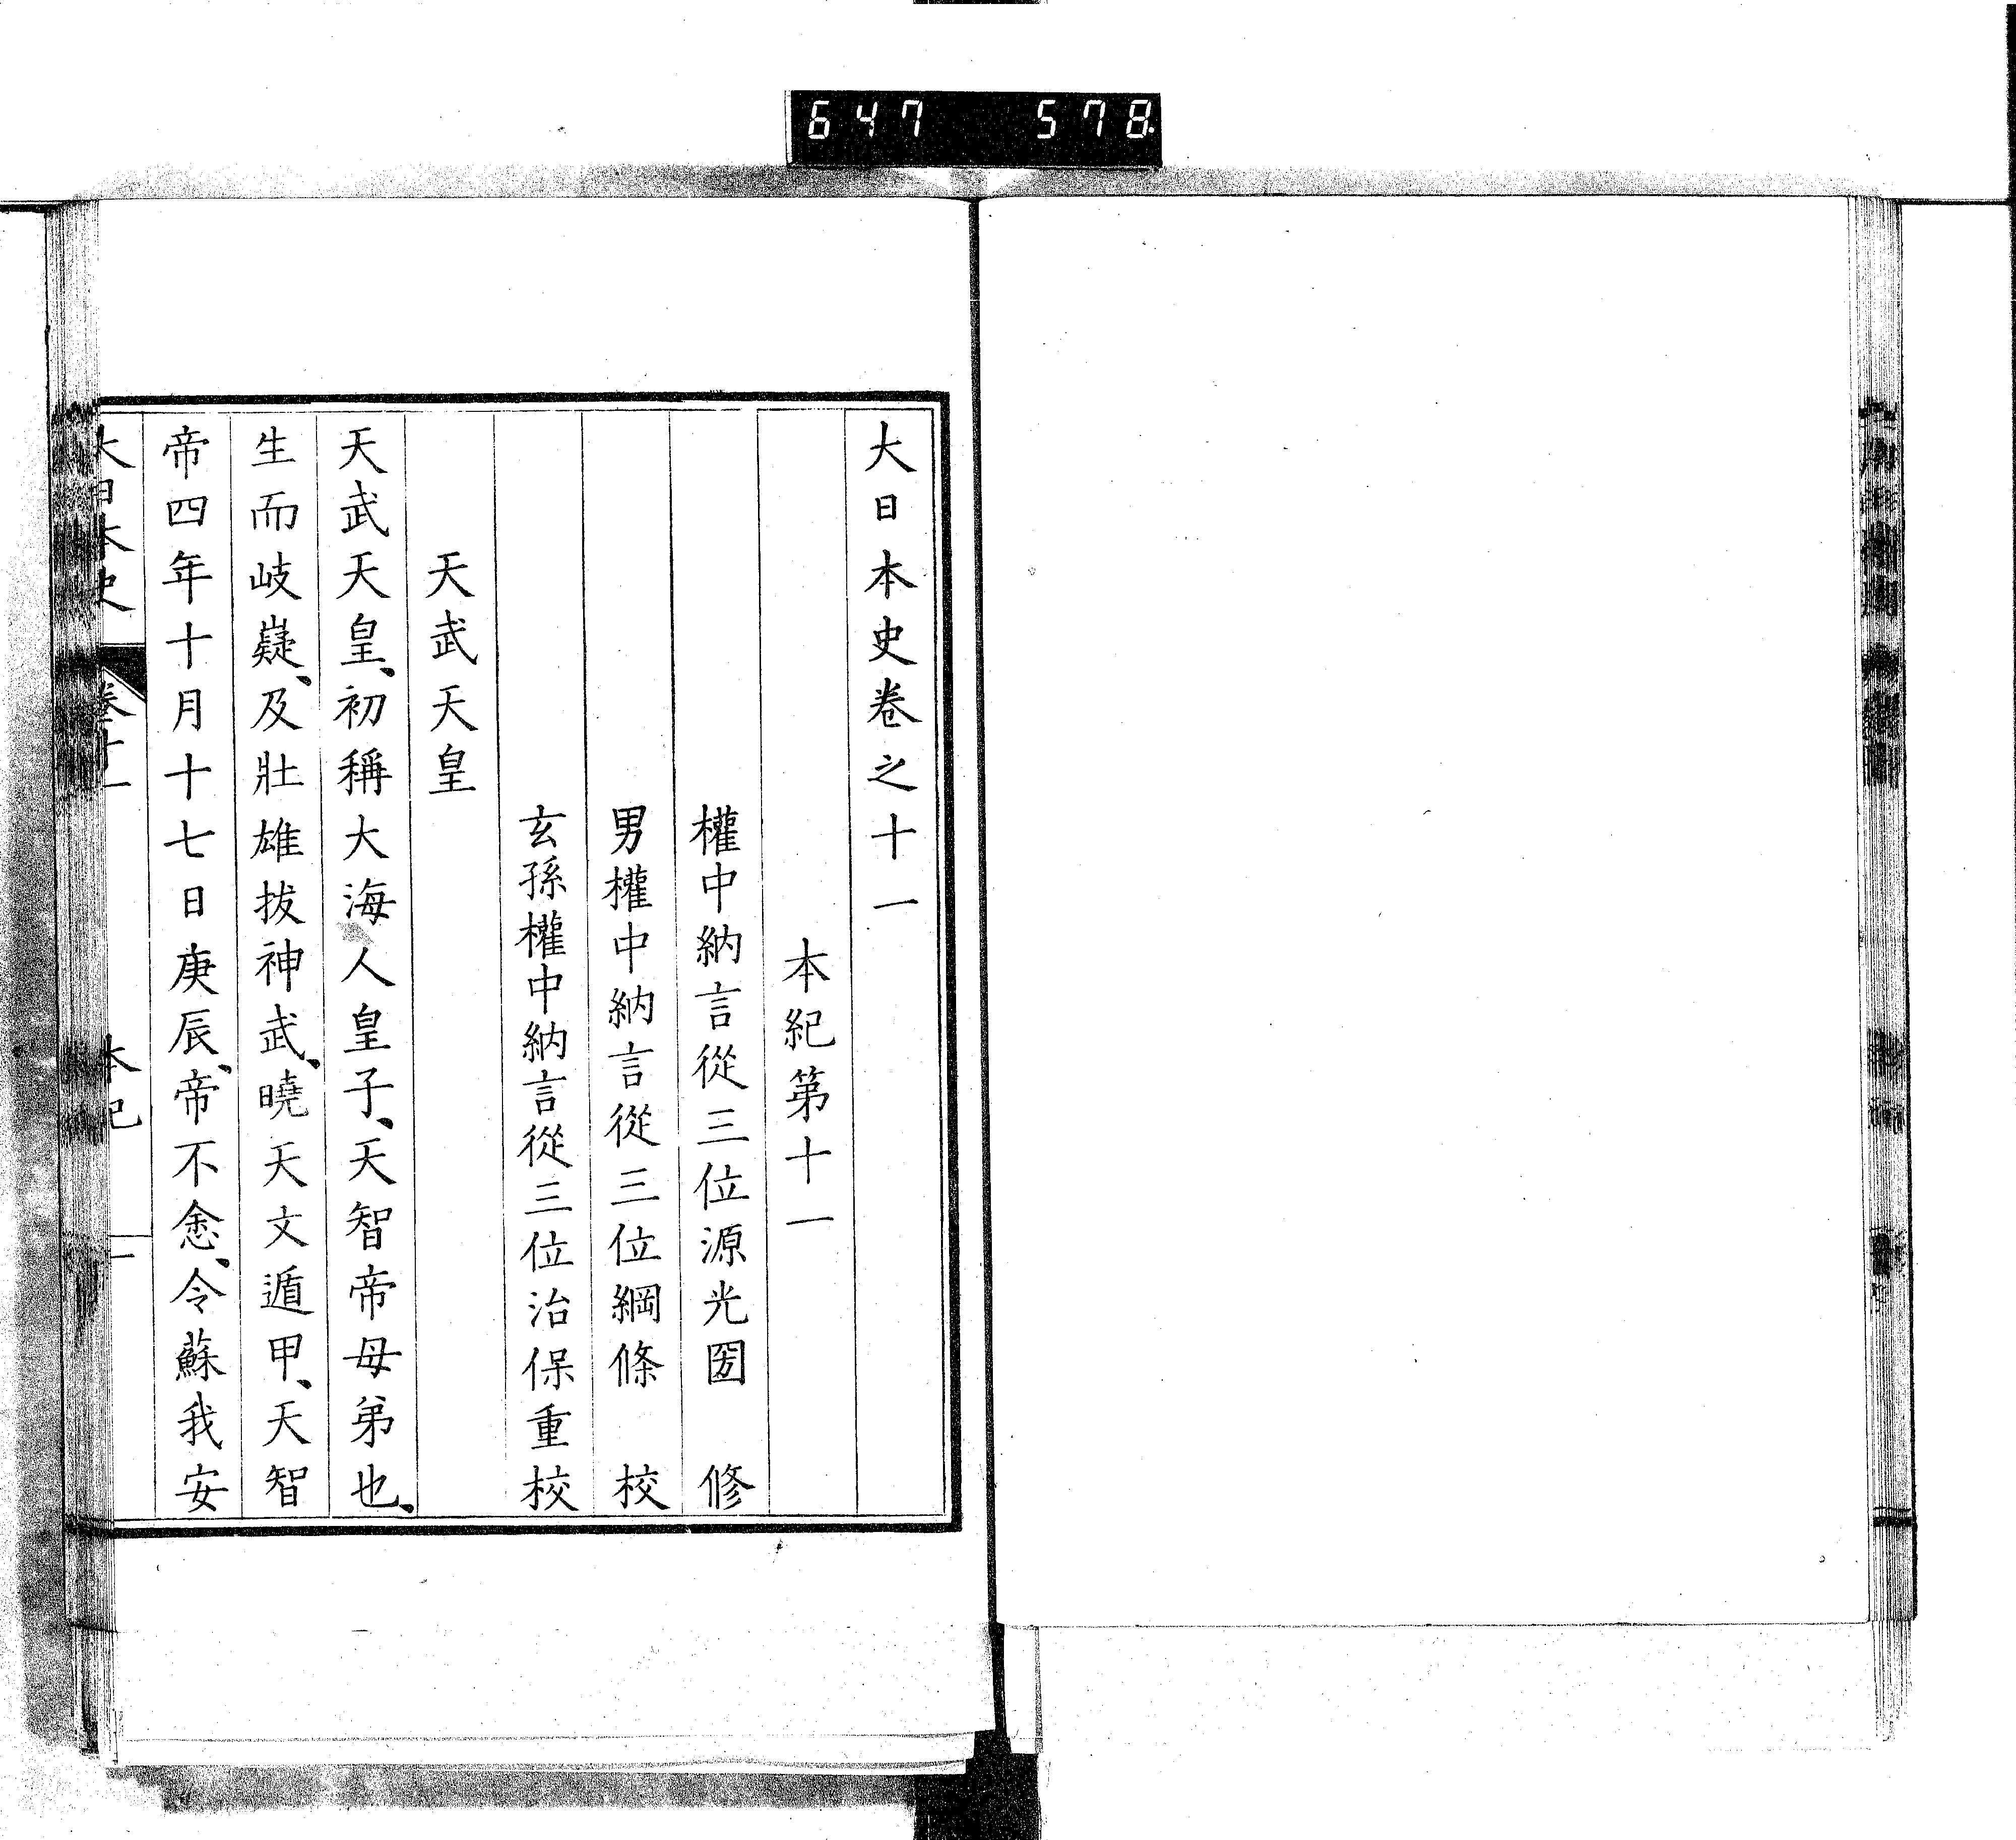 647 578
大日本史卷之十一
本紀第十一
權中納言從三位源光圀 修
男權中納言從三位綱條 校
玄孫權中納言從三位治保重校
天武天皇
天武天皇、初稱大海人皇子、天智帝母弟也、
生而岐嶷、及壯雄拔神武、曉天文遁甲、天智
帝四年十月十七日庚辰、帝不悆、令蘇我安
大日本史 卷十一 本紀 一